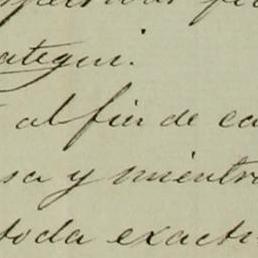 ategui.
al fin de ca
sa y mientra
toda exacti